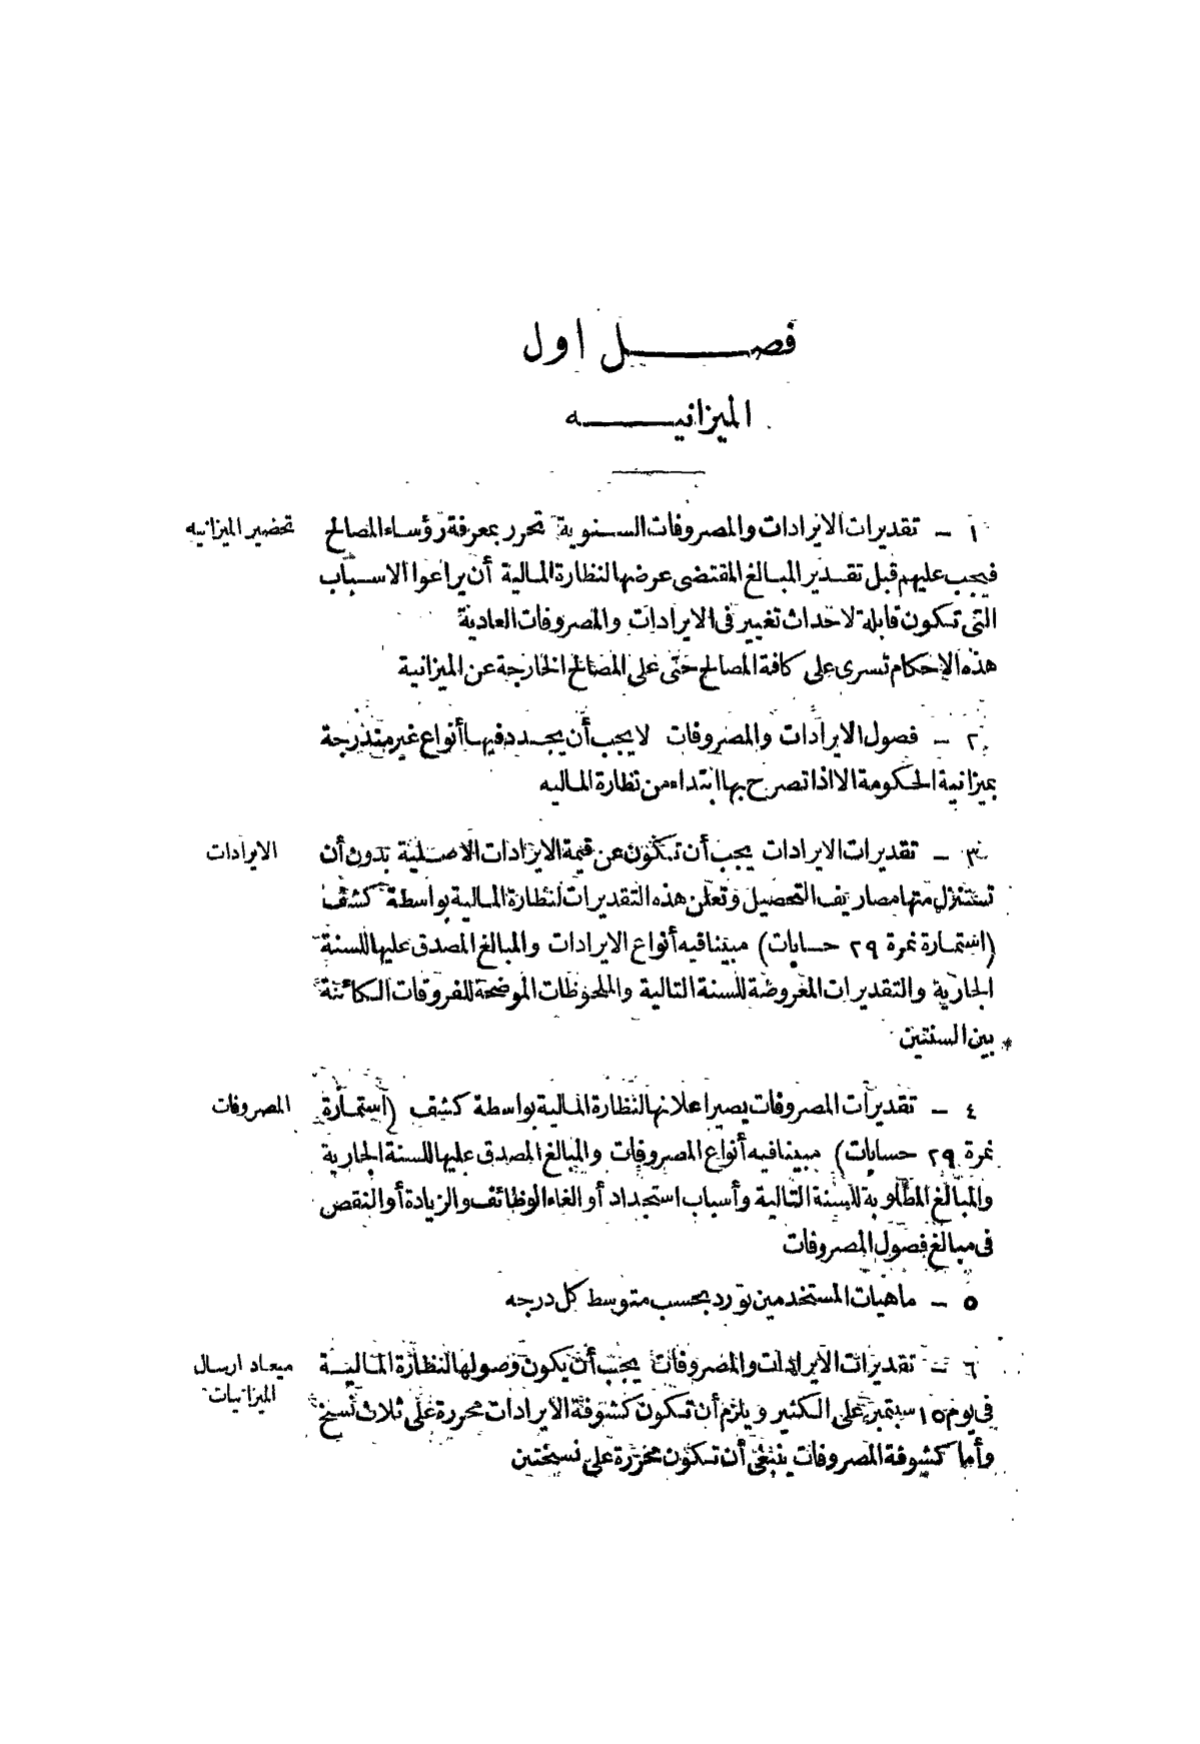 فصل اول
الميزانيه
١ - تقديرات الايرادات والمصروفات السنوية تحرر بمعرفة رؤساء المصالح
تحضير الميزانيه
فيجب عليهم قبل تقدير المبالغ المقتضى عرضها لنظارة المالية أن يراعوا الاسباب
التى تكون قابلة لاحداث تغيير فى الايرادات والمصروفات العادية
هذه الاحكام تسرى على كافة المصالح حتى على المصالح الخارجة عن الميزانية
٢ - فصول الايرادات والمصروفات لا يجب أن يجدد فيها أنواع غير مندرجة
بميزانية الحكومة الا اذا تصرح بها ابتداء من نظارة الماليه
٣ - تقديرات الايرادات يجب أن تكون عن قيمة الايرادات الاصلية بدون أن
الايرادات
تستنزل منها مصاريف التحصيل وتعلن هذه التقديرات لنظارة المالية بواسطة كشف
(استمارة نمرة ٢٩ حسابات) مبينا فيه أنواع الايرادات والمبالغ المصدق عليها للسنة
الجارية والتقديرات المعروضة للسنة التالية والملحوظات الموضحة للفروقات الكائنة
بين السنتين
٤ - تقديرات المصروفات يصير اعلانها لنظارة المالية بواسطة كشف (استمارة
المصروفات
نمرة ٢٩ حسابات) مبينا فيه أنواع المصروفات والمبالغ المصدق عليها للسنة الجارية
والمبالغ المطلوبة للسنة التالية وأسباب استجداد أو الغاء الوظائف والزيادة أو النقص
فى مبالغ فصول المصروفات
٥ - ماهيات المستخدمين تورد بحسب متوسط كل درجه
٦ - تقديرات الايرادات والمصروفات يجب أن يكون وصولها لنظارة المالية
ميعاد ارسال
الميزانيات
فى يوم ١٥ سبتمبر على الكثير ويلزم أن تكون كشوفة الايرادات محررة على ثلاث نسخ
وأما كشوفة المصروفات ينبغى أن تكون محررة على نسختين